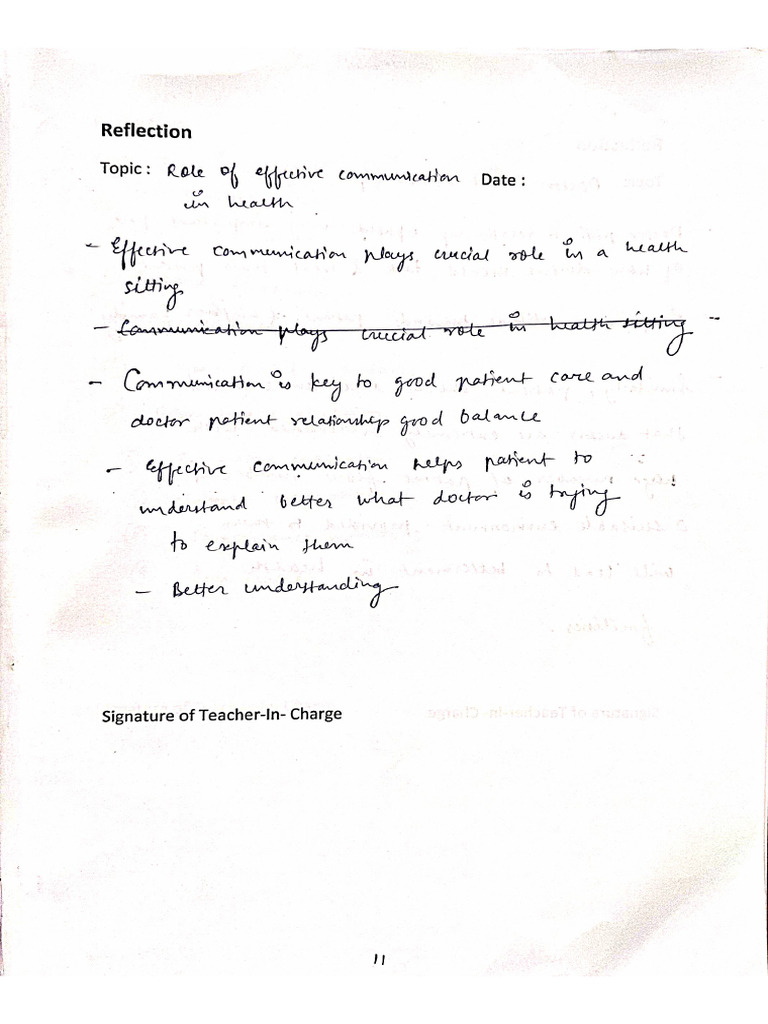 Reflection
Topic : Role of effective communication Date :
in health
- Effective communication plays crucial role in a health
sitting
- ~~Communication plays crucial role in health sitting~~
- Communication is key to good patient care and
doctor patient relationship good balance
- Effective communication helps patient to
understand better what doctor is trying
to explain them
- Better understanding
Signature of Teacher-In- Charge
11